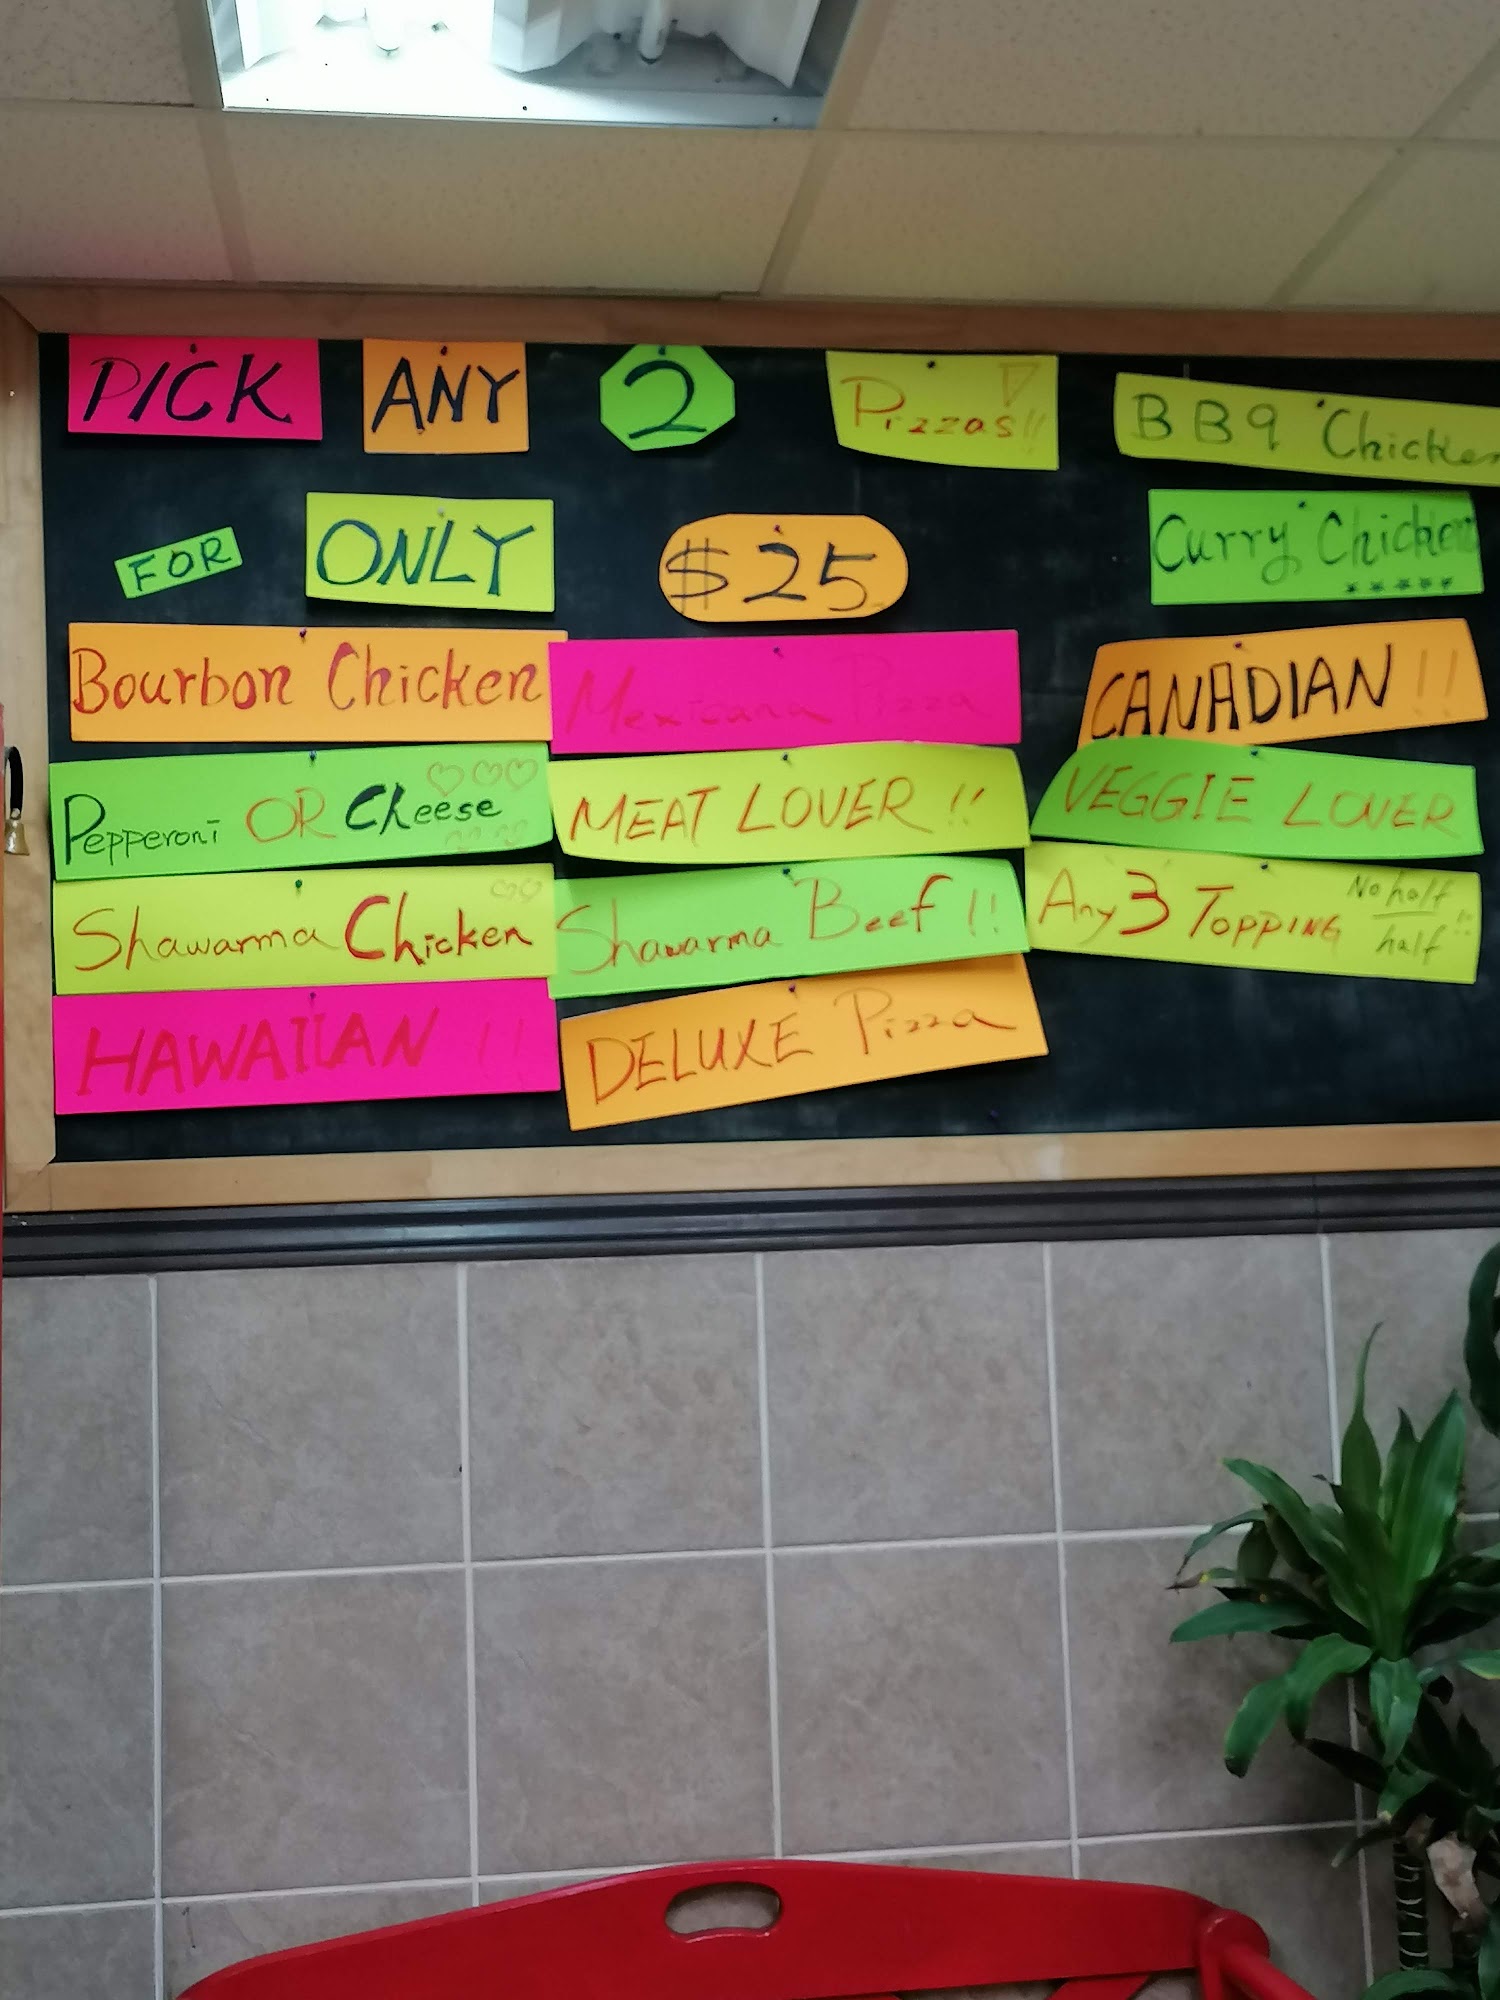 PICK ANY 2 Pizzas!!
FOR ONLY $25
BB9 Chicken
Curry Chicken
Bourbon Chicken
Mexicana Pizza
CANADIAN !!
Pepperoni OR Cheese
MEAT LOVER !!
VEGGIE LOVER
Shawarma Chicken
Shawarma Beef !!
Any 3 TOPPING No half half !!
HAWAIIAN !!
DELUXE Pizza